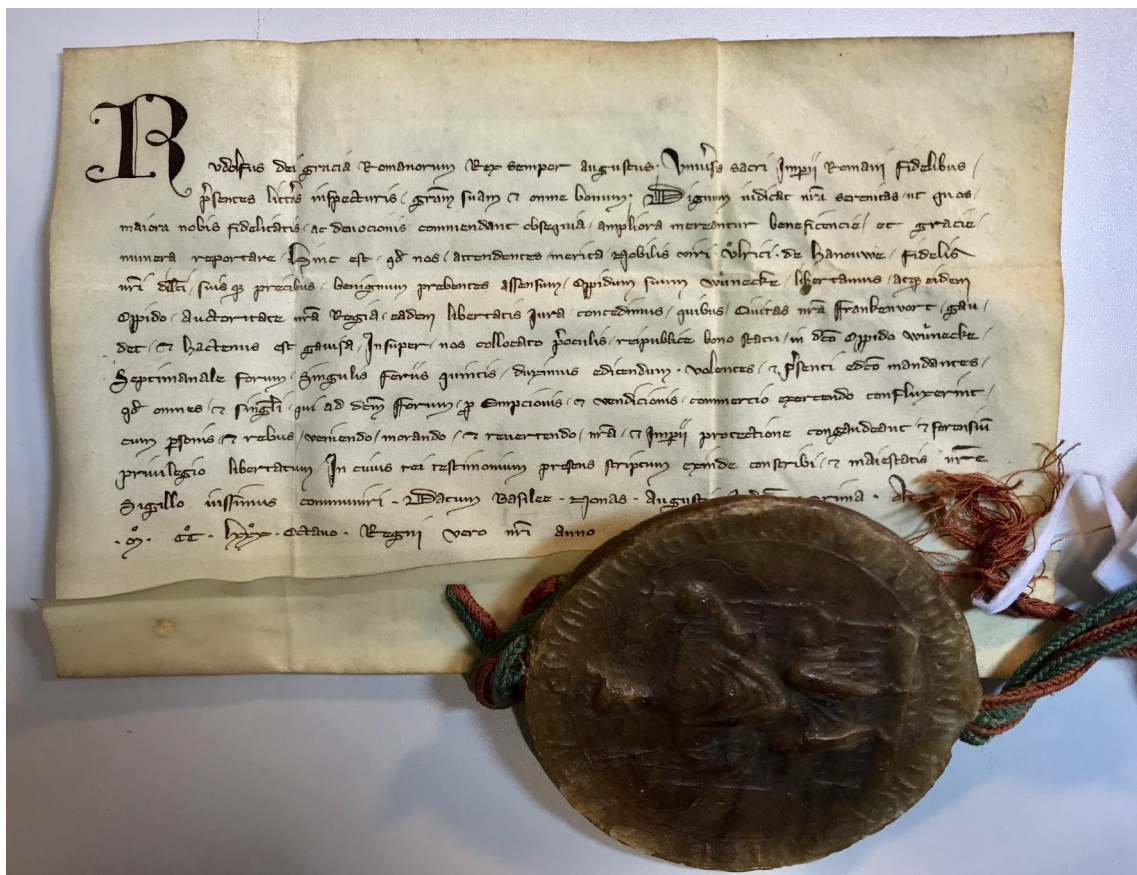 Rudolfus dei gracia Romanorum Rex semper augustus. Vniu͛s sacri Impij Romani fidelibus /
p͛sentes litt͛s inspecturis / gr̄am suam ⁊ omne bonum. Dignum iudicat nr̄a serenitas ut quos /
maiora nobis fidelitatis / ac deuocionis commendant obsequia / ampliora mereantur beneficencie / et gracie /
munera reportare / Hinc est / qd̄ nos / attendentes merita Nobilis viri / Vͦlrici / de Hanouwe / fidelis
nr̄i dil̄ci / suis qꝫ precibus / benignum prebentes assensum / Oppidum suum wuͤnecke / libertamus / atqꝫ eidem
Oppido / Auctoritate nr̄a Regia / eadem libertatis Jura concedimus / quibus Ciuitas nr̄a Frankenvort / gau /
det / ⁊ hactenus est gauisa / Insuper / nos collocato p͛oculis / reipublice bono statu / in dc̄o Oppido wuͤnecke /
Septimanale forum / Singulis feriis quintis / duximus edicendum / volentes / ⁊ p͛senti edc̄o mandantes /
qd̄ omnes / ⁊ singl̄i / qui ad dc̄m Forum / ꝓ Empcionis / ⁊ vendicionis / commercio exercendo confluxerint /
cum ꝑsonis / ⁊ rebus / veniendo / morando / ⁊ reuertendo / nr̄a / ⁊ Impij protectione congaudeant / ⁊ forensiū
priuilegio libertatum / In cuius rei testimonium presens scriptum exinde conscribi / ⁊ maiestatis nr̄e
Sigillo iussimus communiri / Datum Basilee / Nonas / Augusti
. mͦ. cͦcͦ. lxxxͦ. octauo. Regni vero nr̄i anno